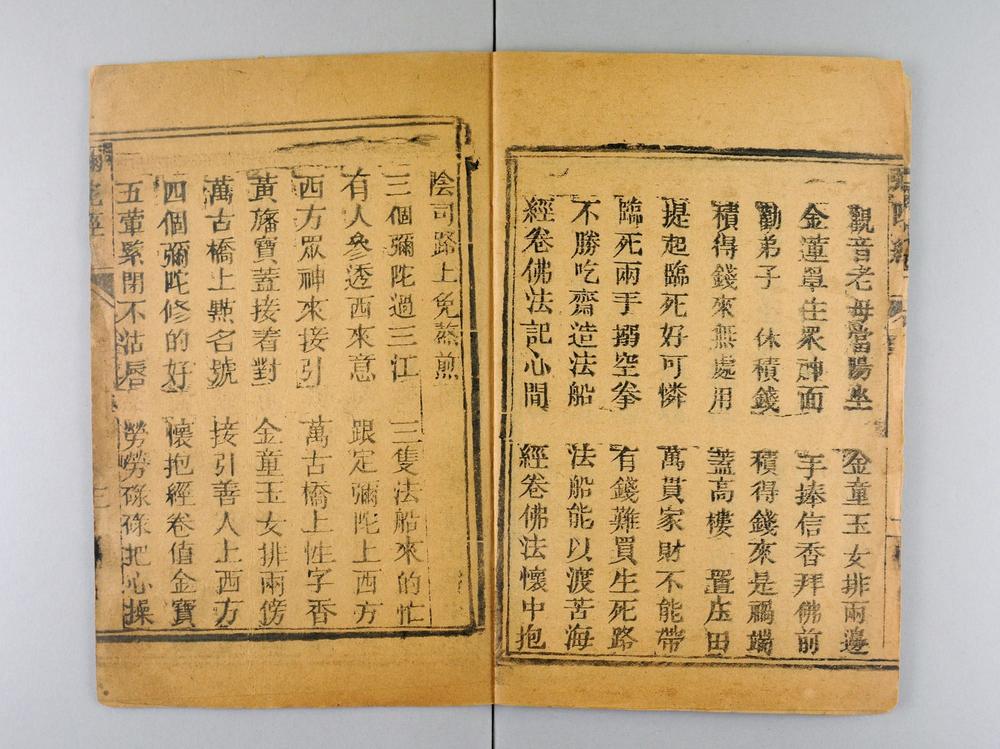 觀音老母當陽坐 金童玉女排兩邊
金蓮罩住眾神面 手捧信香拜佛前
勸弟子 休積錢 積得錢來是禍端
積得錢來無處用 蓋高樓 置庄田
提起臨死好可憐 萬貫家財不能帶
臨死兩手搦空拳 有錢難買生死路
不勝吃齋造法船 法船能以渡苦海
經卷佛法記心間 經卷佛法懷中抱
陰司路上免蒸煎
三個彌陀過三江 三隻法船來的忙
有人叅透西來意 跟定彌陀上西方
西方眾神來接引 萬古橋上性字香
黃旛寶蓋接着對 金童玉女排兩傍
萬古橋上點名號 接引善人上西方
四個彌陀修的好 懷抱經卷值金寶
五葷緊閉不沽唇 勞勞碌碌把心操